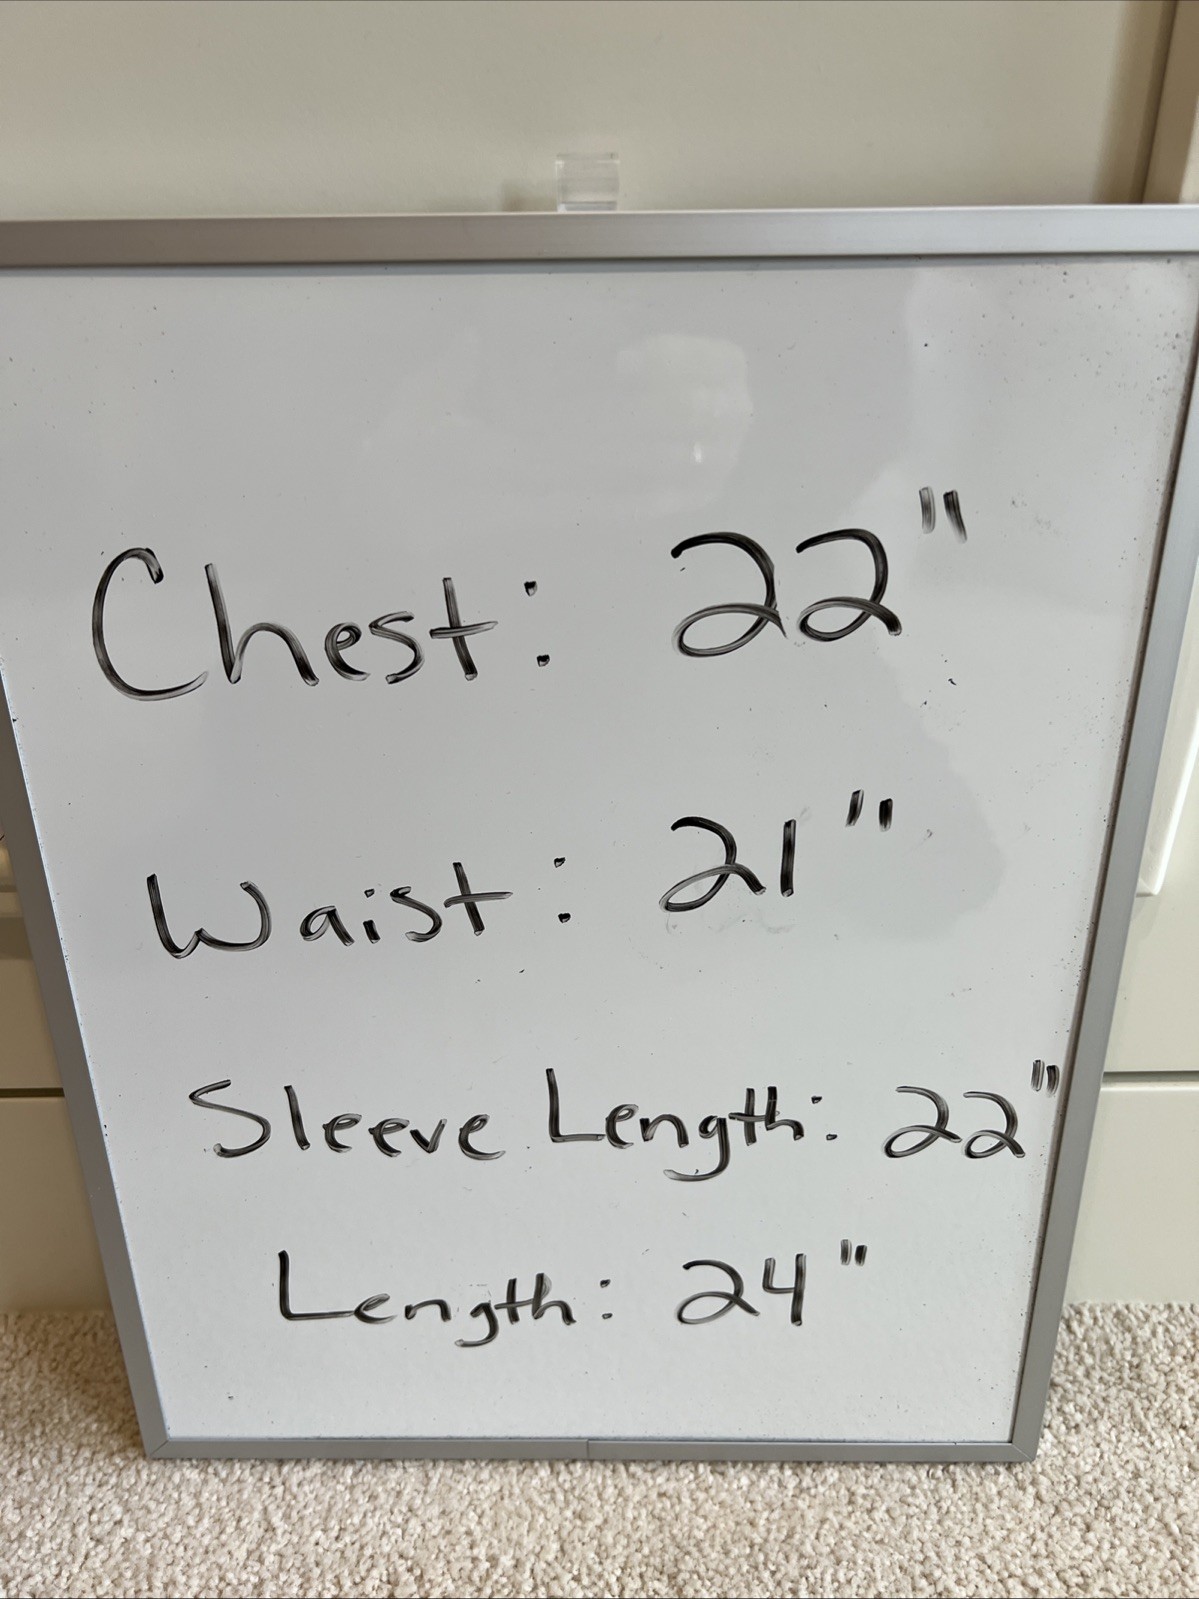 Chest: 22"
Waist: 21"
Sleeve Length: 22"
Length: 24"